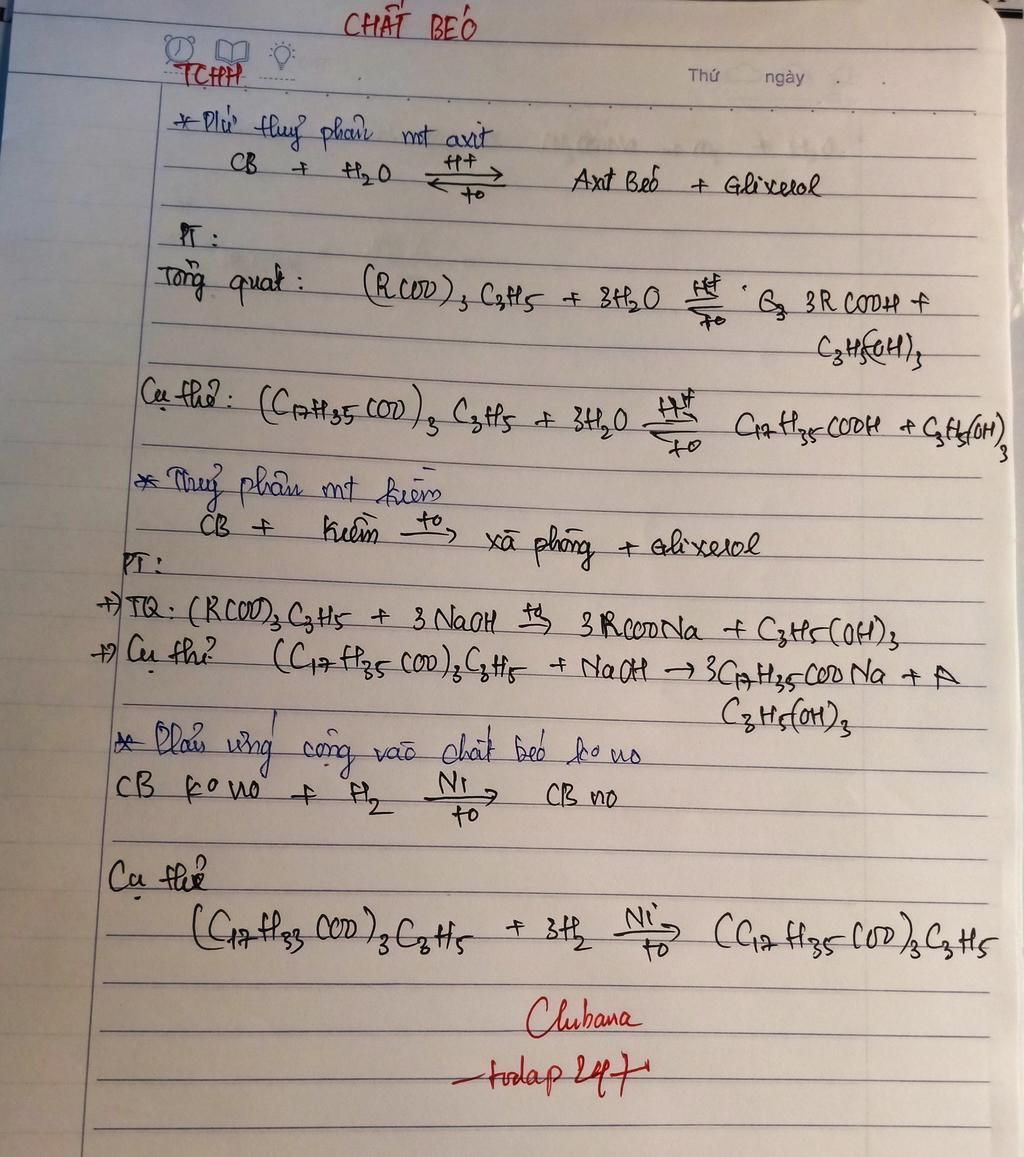 CHẤT BÉO
TCHH
Thứ ngày
* Pứ thuỷ phân mt axit
CB + H₂O ⇌ (H+, to) Axit Béo + Glixerol
PT:
Tổng quát: (RCOO)₃C₃H₅ + 3H₂O ⇌ (H+, to) 3RCOOH +
C₃H₅(OH)₃
Cụ thể: (C₁₇H₃₅COO)₃C₃H₅ + 3H₂O ⇌ (H+, to) C₁₇H₃₅COOH + C₃H₅(OH)₃
* Thuỷ phân mt kiềm
CB + kiềm →(to) xà phòng + Glixerol
PT:
+) TQ: (RCOO)₃C₃H₅ + 3NaOH →(to) 3RCOONa + C₃H₅(OH)₃
+) Cụ thể (C₁₇H₃₅COO)₃C₃H₅ + NaOH → 3C₁₇H₃₅COONa +
C₃H₅(OH)₃
* Phản ứng cộng vào chất béo ko no
CB ko no + H₂ →(Ni, to) CB no
Cụ thể
(C₁₇H₃₃COO)₃C₃H₅ + 3H₂ →(Ni, to) (C₁₇H₃₅COO)₃C₃H₅
Clubana
todap 247